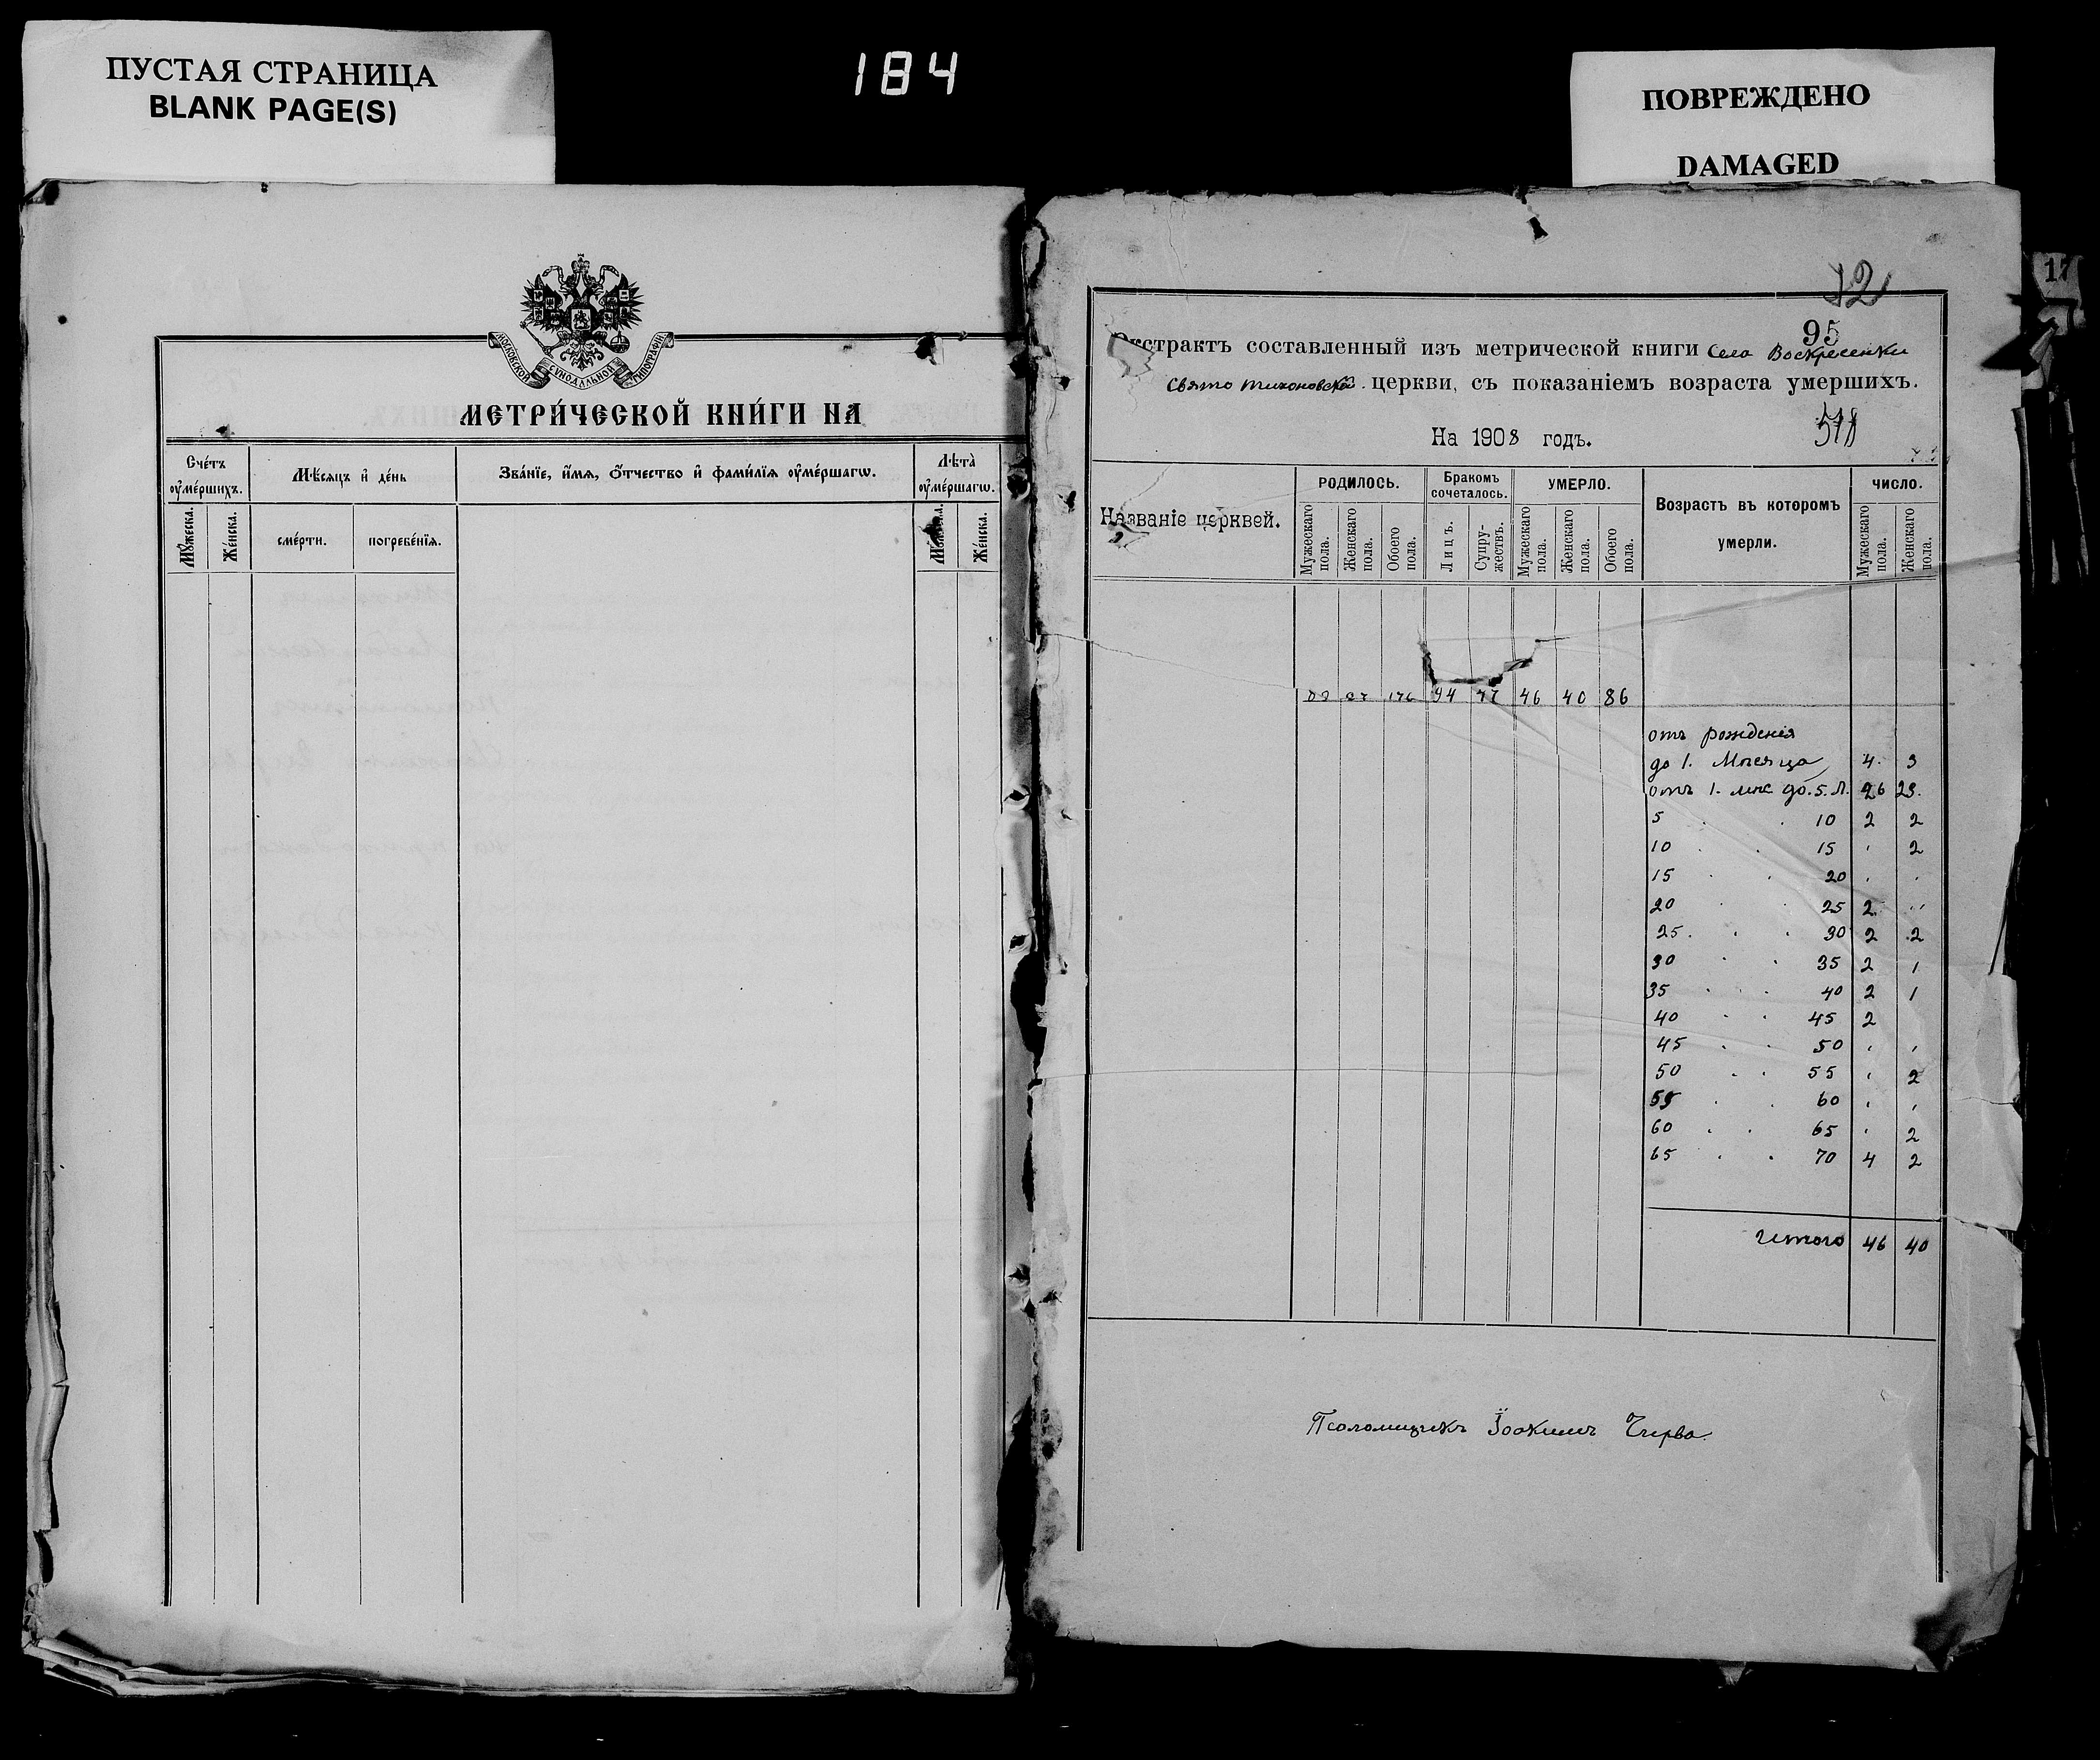 ПУСТАЯ СТРАНИЦА
BLANK PAGE(S)
184
ПОВРЕЖДЕНО
DAMAGED
МОСКОВСКОЙ СѴНОДАЛЬНОЙ ТИПОГРАФІИ
МЕТРИ́ЧЕСКОЙ КНИ́ГИ НА
Сче́тъ ᲂу҆ме́ршихъ.
Мѣ́сяцъ и҆ де́нь
Зва́нїе, и҆́мя, ѻ҆́тчество и҆ фами́лїя ᲂу҆ме́ршагѡ.
Лѣта̀ ᲂу҆ме́ршагѡ.
Мꙋ́жеска.
Же́нска.
сме́рти.
погребе́нїя.
Мꙋ́жеска.
Же́нска.
17
95
Экстрактъ составленный изъ метрической книги села Воскресенки
Свято Тихоновской церкви, съ показаніемъ возраста умершихъ.
На 1908 годъ.
Названіе церквей.
РОДИЛОСЬ.
Бракомъ сочеталось.
УМЕРЛО.
Возрастъ въ которомъ умерли.
ЧИСЛО.
Мужескаго пола.
Женскаго пола.
Обоего пола.
Лицъ.
Супружествъ.
Мужескаго пола.
Женскаго пола.
Обоего пола.
Мужескаго пола.
Женскаго пола.
176 94 47 46 40 86
отъ рожденія
до 1. Мѣсяца 4. 3
отъ 1. мѣс. до 5. л. 26 23.
5 . . 10 2 2
10 . . 15 . 2
15 . . 20 . .
20 . . 25 2 ..
25 . . 30 2 2
30 . . 35 2 1
35 . . 40 2 1
40 . . 45 2
45 . . 50 . .
50 . . 55 . 2
55 . . 60 . .
60 . . 65 . 2
65 . . 70 4 2
Итого 46 40
Псаломщикъ Іоакимъ Чирва.